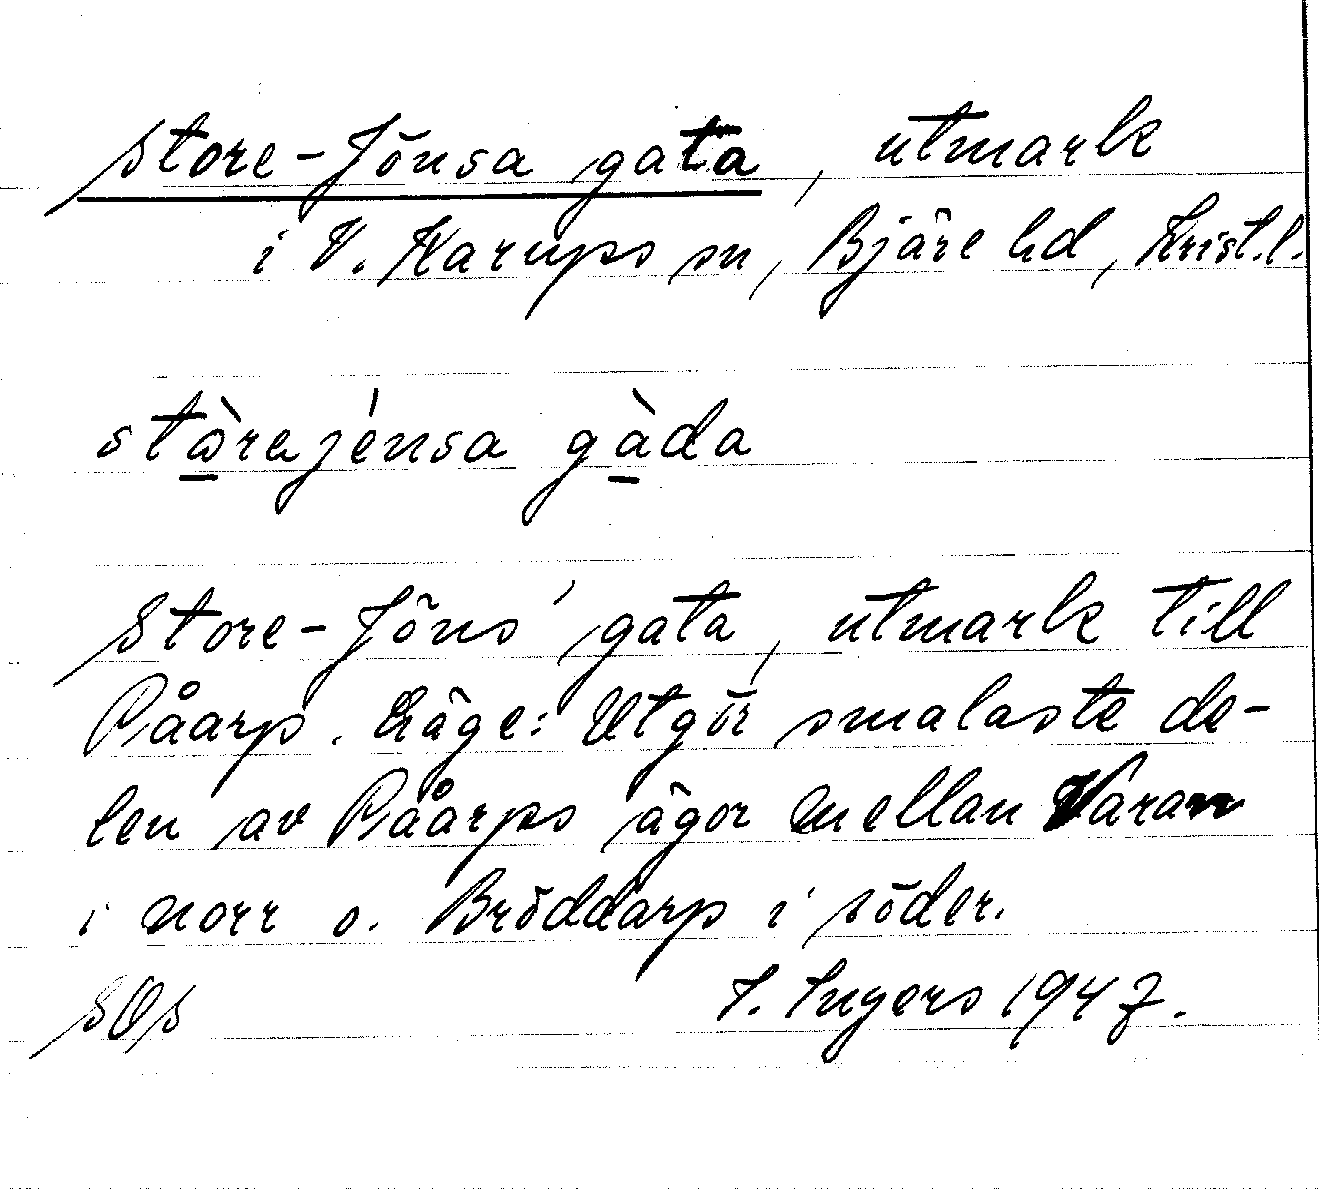 Store-Jönsa gata, utmark
i V. Karups sn, Bjäre hd, Krist.l.
stàrejénsa gàda
Store-Jöns' gata, utmark till
Påarp. Läge: Utgör smalaste de-
len av Påarps ägor mellan Varan
i norr o. Bröddarp i söder.
SOs I. Ingers 1947.